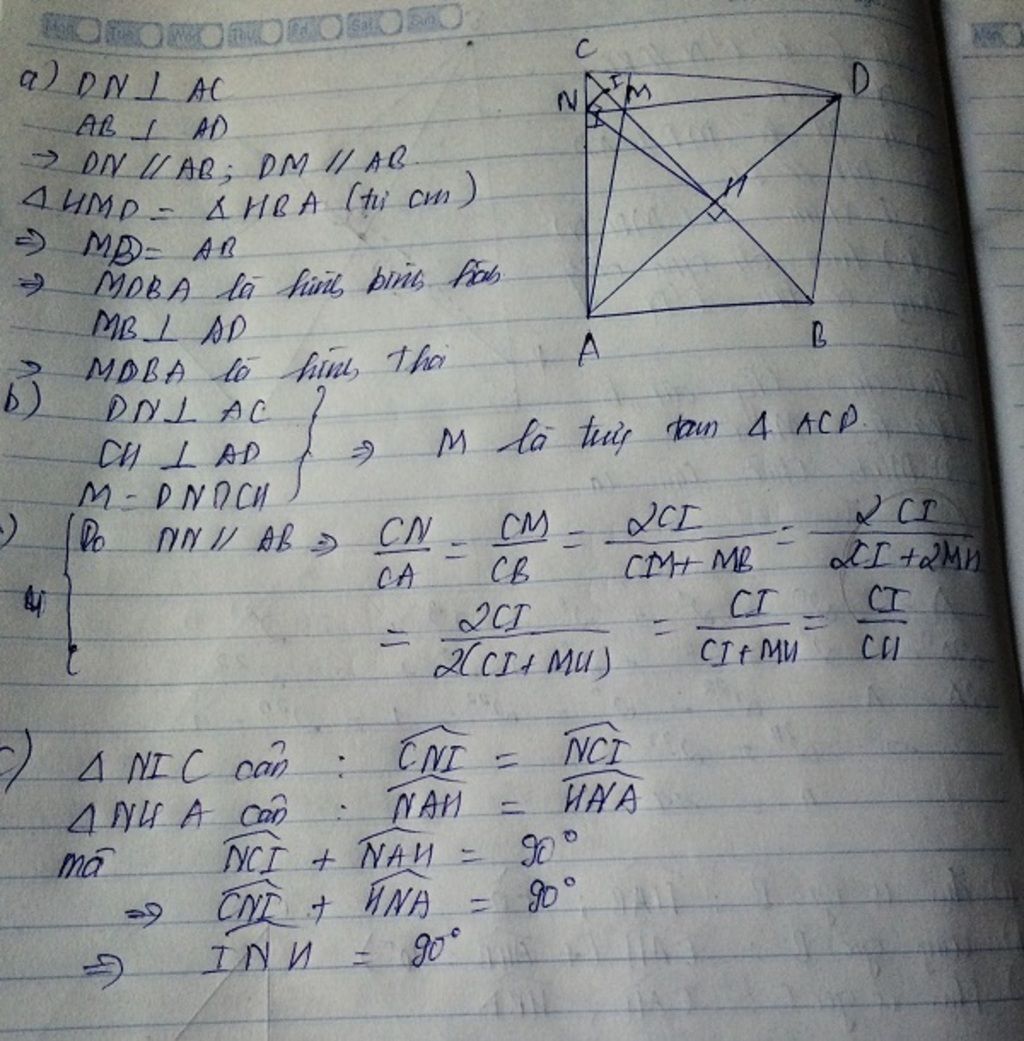 a) DN ⊥ AC
AB ⊥ AD
⇒ DN // AB; DM // AB
Δ HMD = Δ HBA (tự cm)
⇒ MD = AB
⇒ MDBA là hình bình hành
MB ⊥ AD
⇒ MDBA là hình thoi
C
I
M
N
D
H
A
B
b) DN ⊥ AC
CH ⊥ AD
M = DN ∩ CH
} ⇒ M là trực tâm Δ ACD.
Do MN // AB ⇒ CN/CA = CM/CB = 2CI/(CM + MB) = 2CI/(2CI + 2MH)
= 2CI/2(CI + MH) = CI/(CI + MH) = CI/CH
c) Δ NIC cân : CNI = NCI
Δ NHA cân : NAH = HNA
mà NCI + NAH = 90°
⇒ CNI + HNA = 90°
⇒ INH = 90°